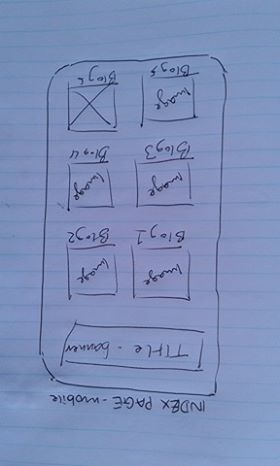 INDEX PAGE - mobile
Title - banner
Image Image
Blog1 Blog2
Image Image
Blog3 Blog4
Image
Blog5 Blog6